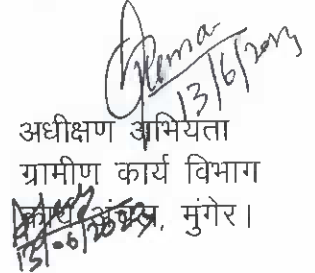 13/6/2023
अधीक्षण अभियता
ग्रामीण कार्य विभाग
कार्य अंचल, मुंगेर।
13/06/2023